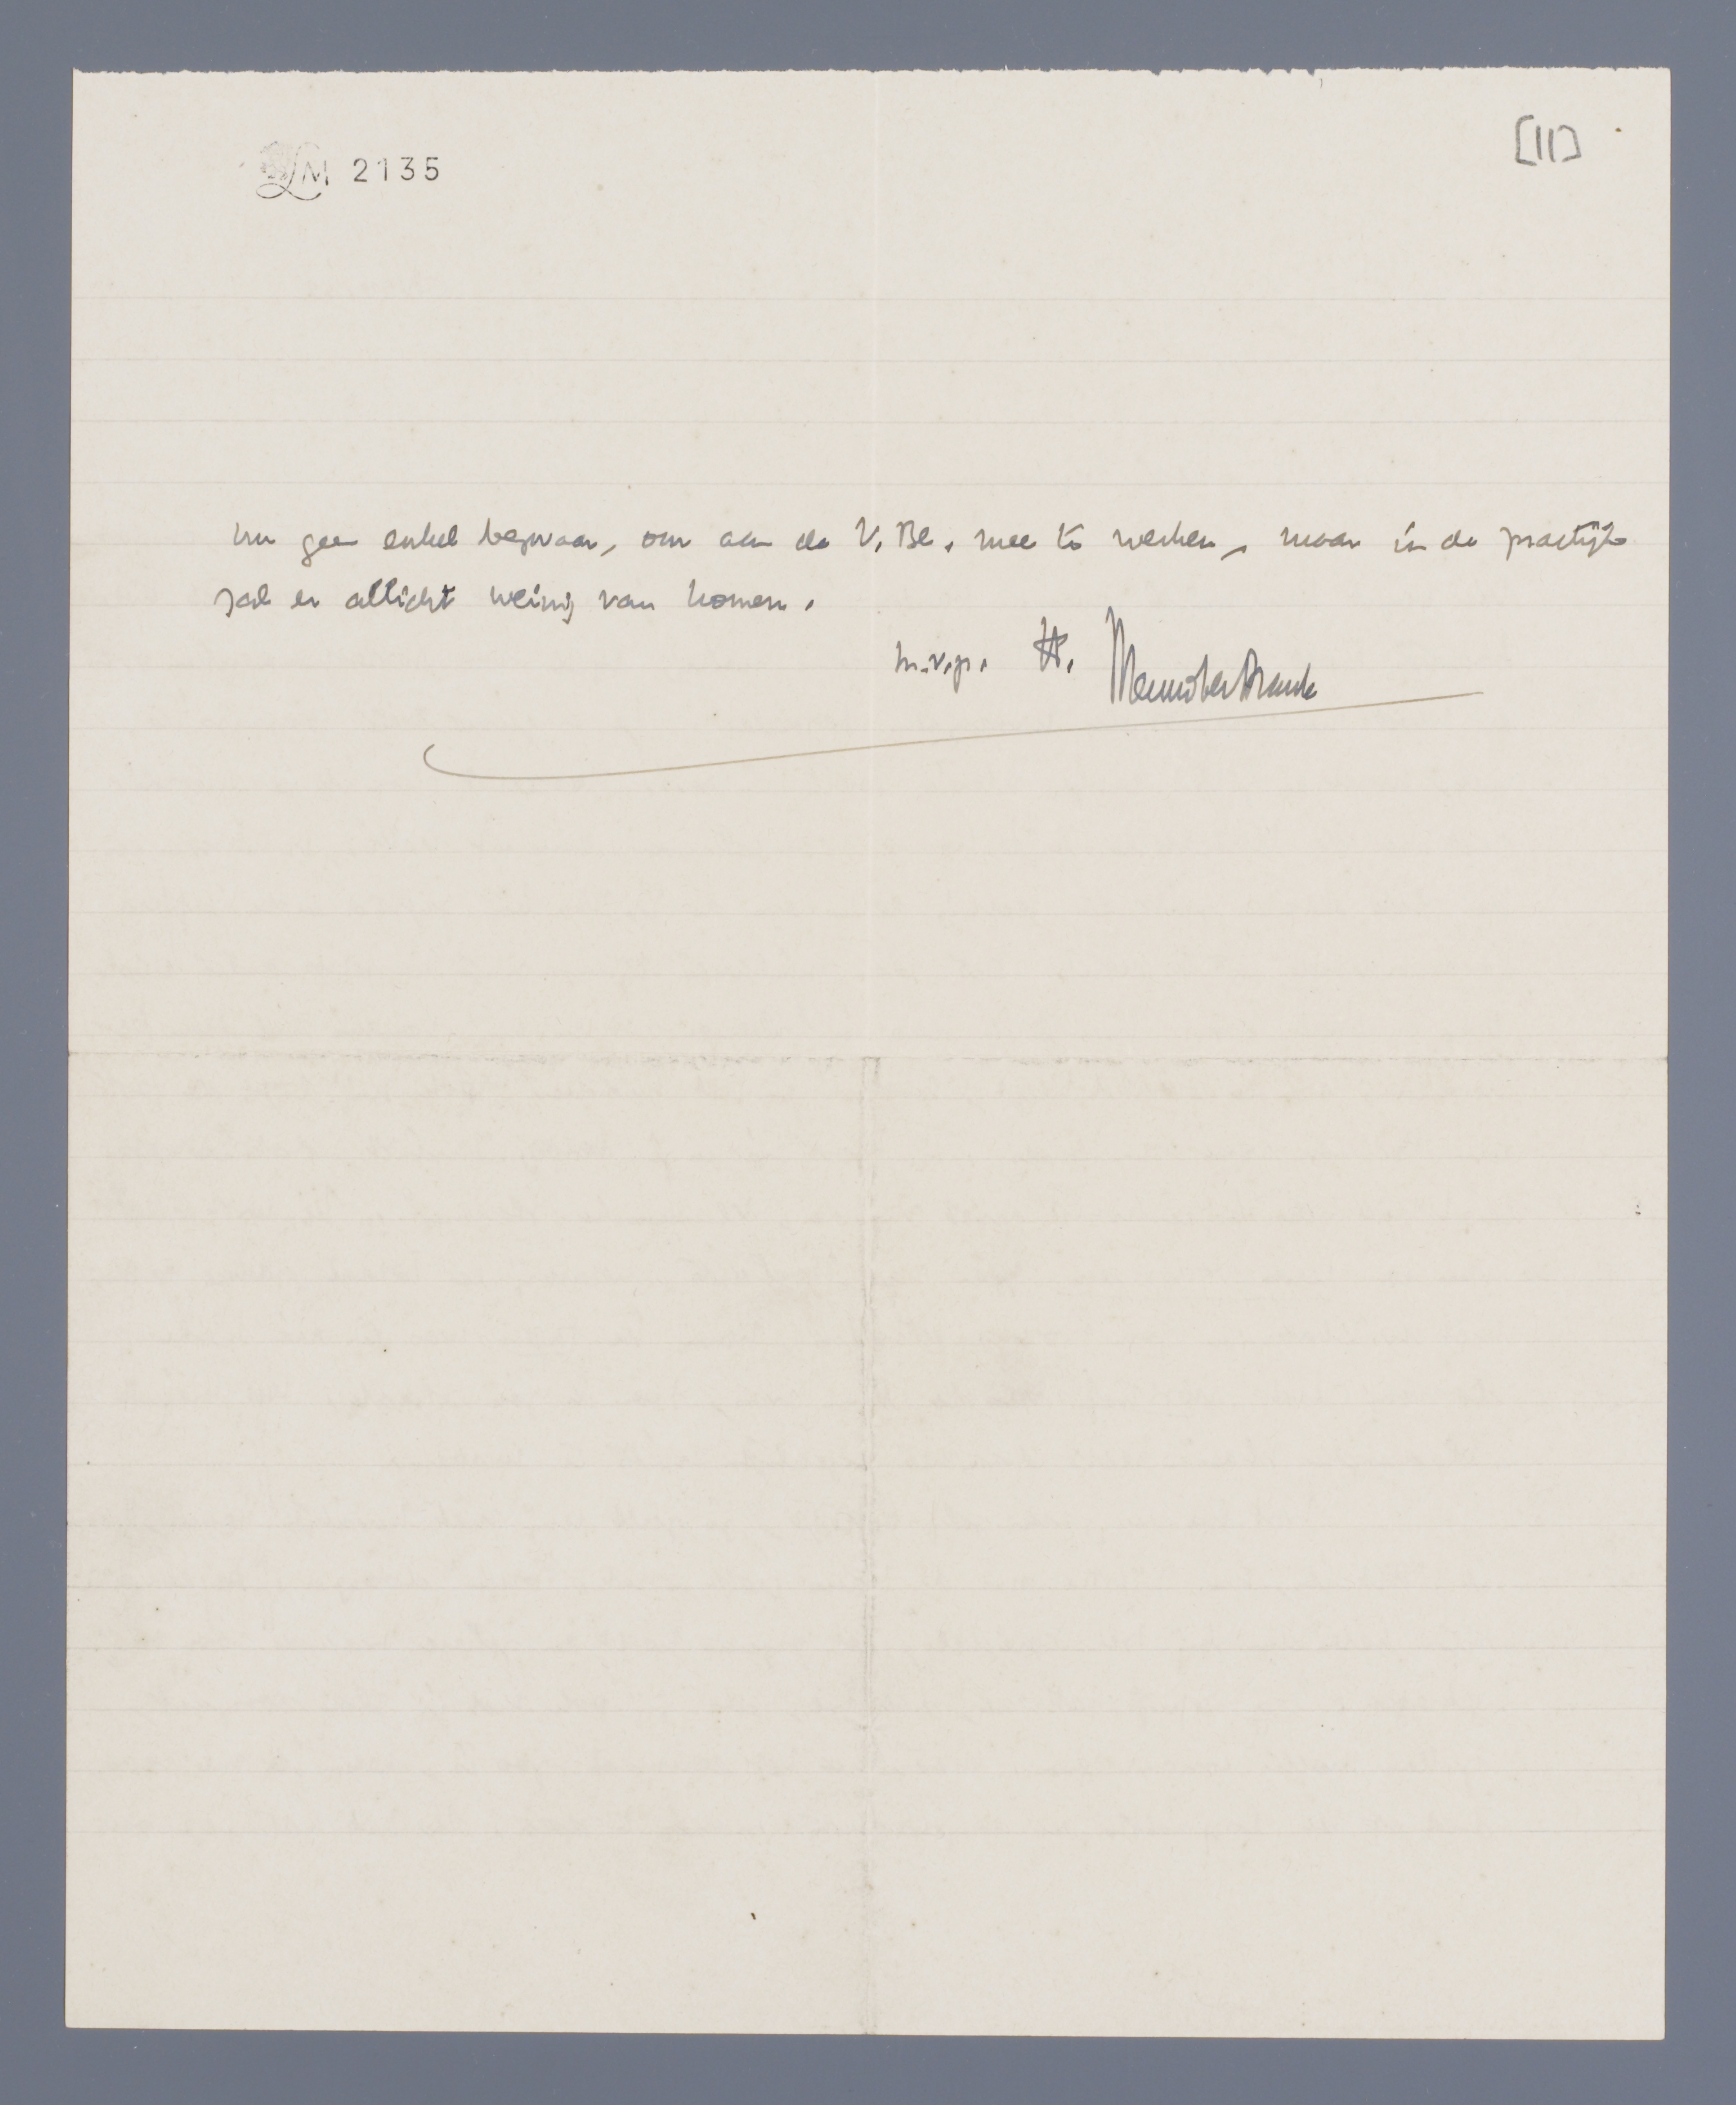 LM 2135
[11]
nu geen enkel bezwaar, om aan de V. Bl. mee te werken, maar in de practijk
zal er allicht weinig van komen.
m.v.gr. tt.
Menno ter Braak